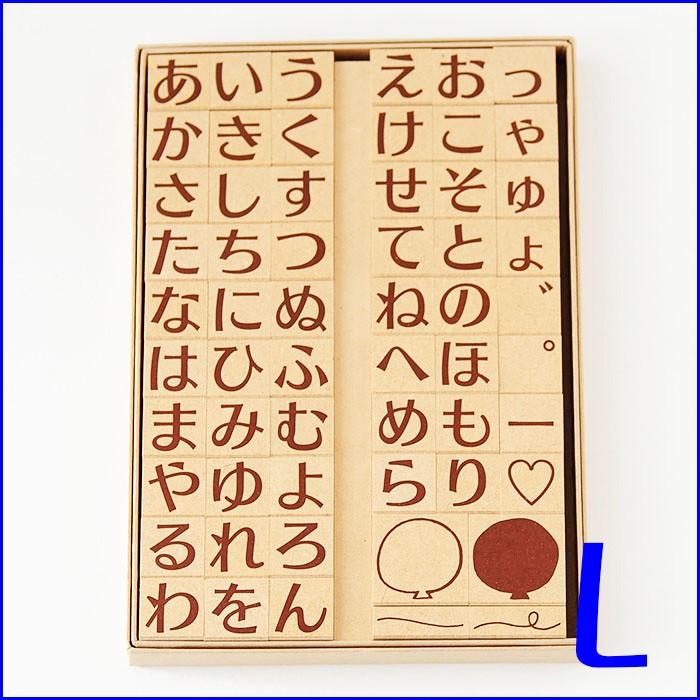 あいう えおっ
かきく けこゃ
さしす せそゅ
たちつ てとょ
なにぬ ねの゛
はひふ へほ゜
まみむ めもー
やゆよ らり♡
るれろ
わをん
L